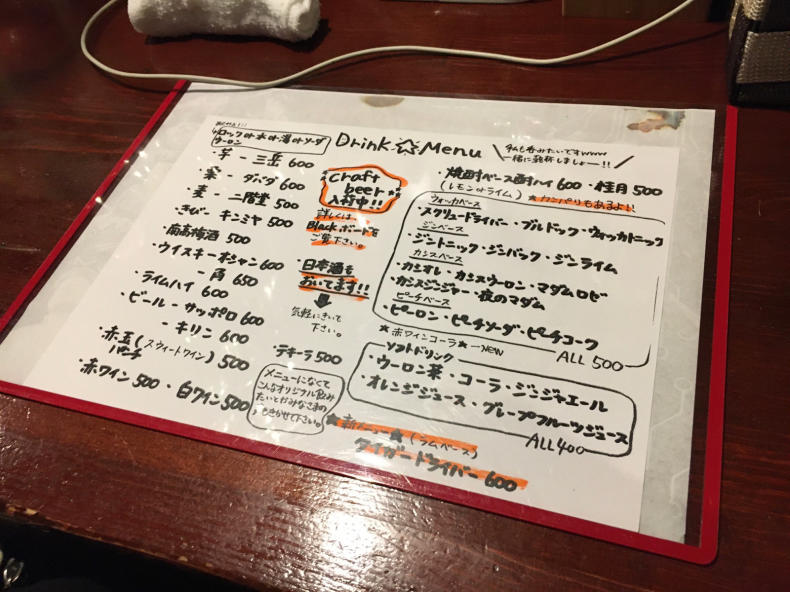 Drink☆Menu
ロックor水or湯orソーダ
ウーロン
芋 - 三岳 600
栗 - ダバダ 600
麦 - 二階堂 500
きび - キンミヤ 500
・南高梅酒 500
・ウイスキー - オシャン 600
- 角 650
・ライムハイ 600
・ビール - サッポロ 600
- キリン 600
・赤玉(スウィートワイン) 500
パンチ
・赤ワイン 500 ・白ワイン 500
Craft
beer
入荷中!!
詳しくは
Blackボードを
ご覧下さい。
・日本酒も
おいてます!!
↓
気軽にきいて
下さい。
・テキーラ 500
メニューになくて
こんなオリジナル飲み
たいとかみなさまの
きかせて下さい。
私も呑みたいですwww
一緒に乾杯しましょー!!
・焼酎ベース酎ハイ 600 ・桂月 500
(レモンorライム) ★カンパリもあるよ!!
ウォッカベース
・スクリュードライバー・ブルドック・ウォッカトニック
ジンベース
・ジントニック・ジンバック・ジンライム
カシスベース
・カシオレ・カシスウーロン・マダムロゼ
・カシスジンジャー・夜のマダム
ピーチベース
・ピーロン・ピーチソーダ・ピーチコーク
★赤ワインコーラ★ - New
ALL 500
ソフトドリンク
・ウーロン茶・コーラ・ジンジャエール
・オレンジジュース・グレープフルーツジュース
ALL 400
★新メニュー★(ラムベース)
タイガードライバー 600